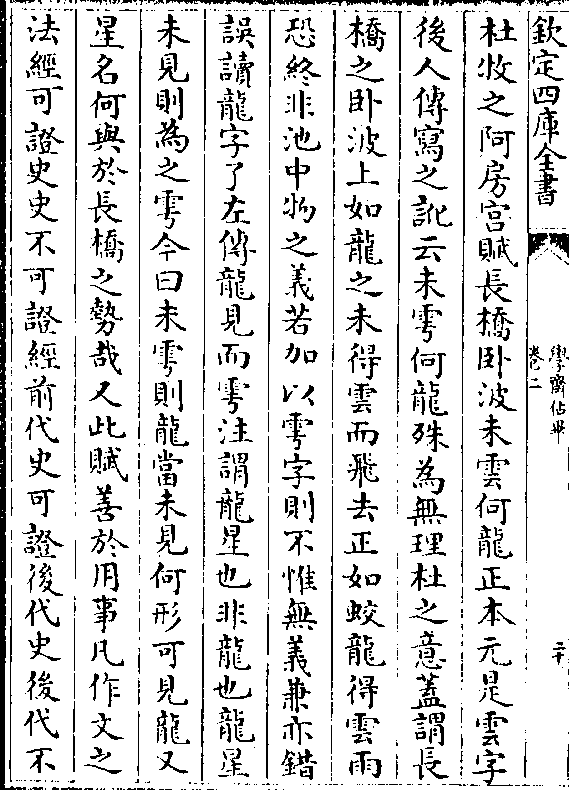 欽定四庫全書
學齋佔畢
卷二
二十
杜牧之阿房宮賦長橋卧波未雲何龍正本元是雲字
後人傳寫之訛云未雩何龍殊為無理杜之意蓋謂長
橋之卧波上如龍之未得雲而飛去正如蛟龍得雲雨
恐終非池中物之義若加以雩字則不惟無義兼亦錯
誤讀龍字了左傳龍見而雩注謂龍星也非龍也龍星
未見則為之雩今曰未雩則龍當未見何形可見龍又
星名何與於長橋之勢哉又此賦善於用事凡作文之
法經可證史史不可證經前代史可證後代史後代不